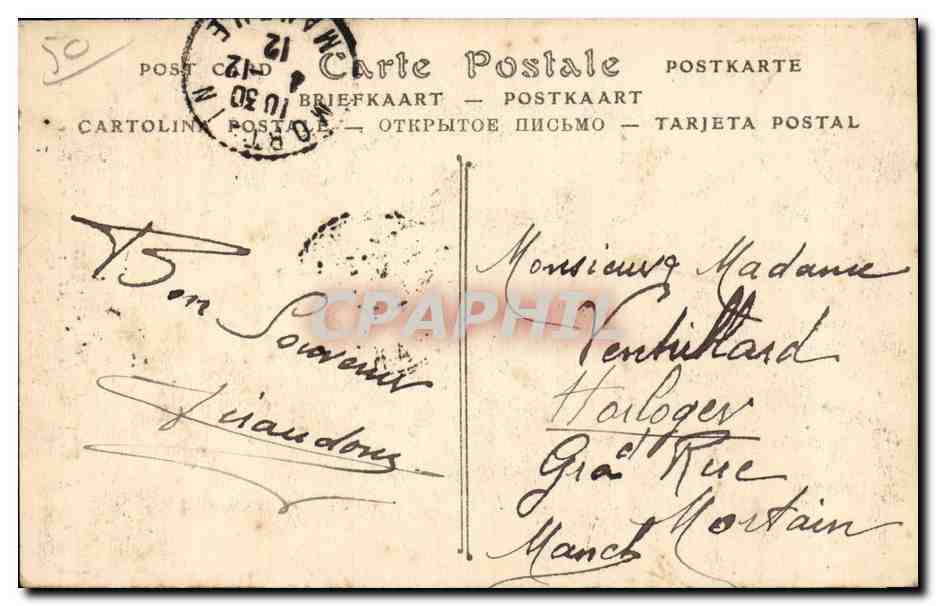 50
POST CARD Carte Postale POSTKARTE
BRIEFKAART — POSTKAART
CARTOLINA POSTALE — ОТКРЫТОЕ ПИСЬМО — TARJETA POSTAL
MORTAIN MANCHE
10 30
4 -12
12
Bon
Souvenir
Monsieur & Madame
Horloger
Grad Rue
Mortain
Manch
CPAPHIL